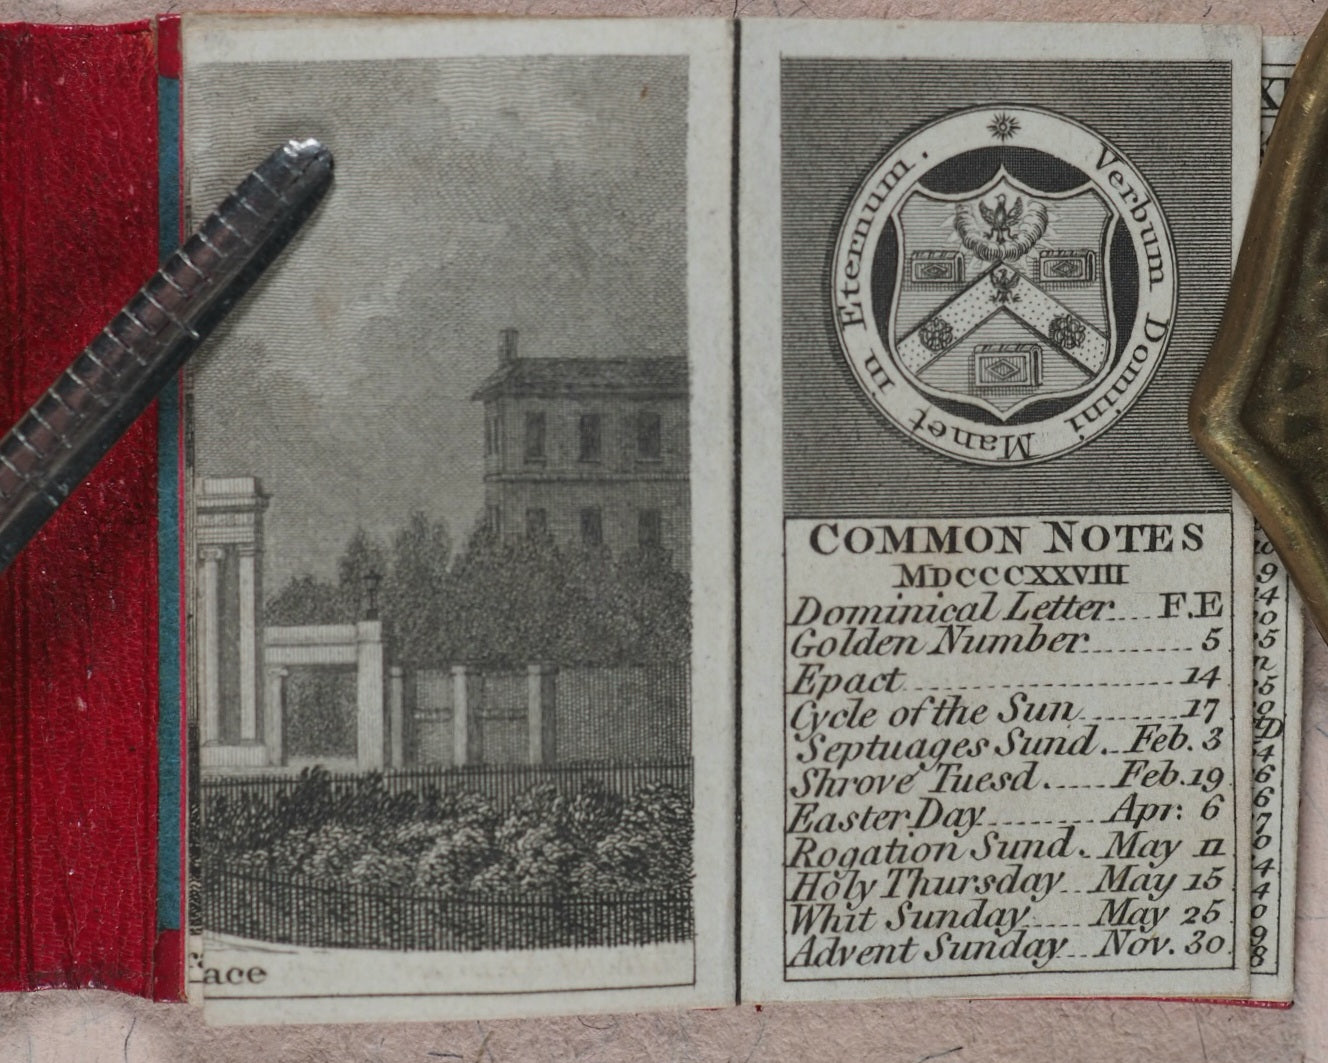 face
Verbum Domini Manet in Eternum.
COMMON NOTES
MDCCCXXVIII
Dominical Letter....F.E
Golden Number.........5
Epact...................14
Cycle of the Sun........17
Septuages Sund..Feb. 3
Shrove Tuesd......Feb.19
Easter Day.........Apr: 6
Rogation Sund..May 11
Holy Thursday...May 15
Whit Sunday.....May 25
Advent Sunday...Nov. 30